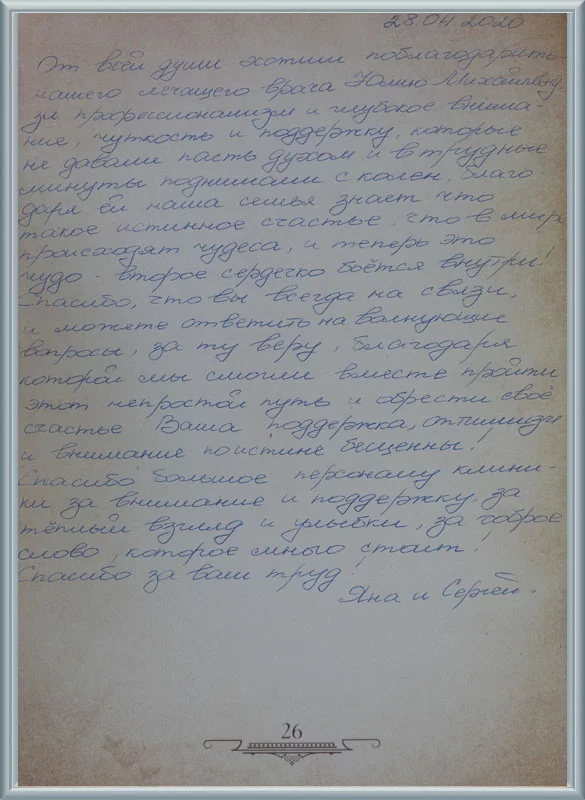 28.04.2020
От всей души хотим поблагодарить
нашего лечащего врача Юлию Михайловну,
за профессионализм и глубокое внима-
ние, чуткость и поддержку, которые
не давали пасть духом и в трудные
минуты поднимали с колен, благо
даря ей наша семья знает что
такое истинное счастье, что в мире
происходят чудеса, и теперь это
чудо - второе сердечко бьётся внутри!
Спасибо, что вы всегда на связи,
и можете ответить на волнующие
вопросы, за ту веру, благодаря
которой мы смогли вместе пройти
этот непростой путь и обрести своё
счастье Ваша поддержка, оптимизм
и внимание поистине бесценны!
Спасибо большое персоналу клини-
ки за внимание и поддержку, за
тёплый взгляд и улыбки, за доброе
слово, которое много стоит!
Спасибо за ваш труд!
Яна и Сергей.
26